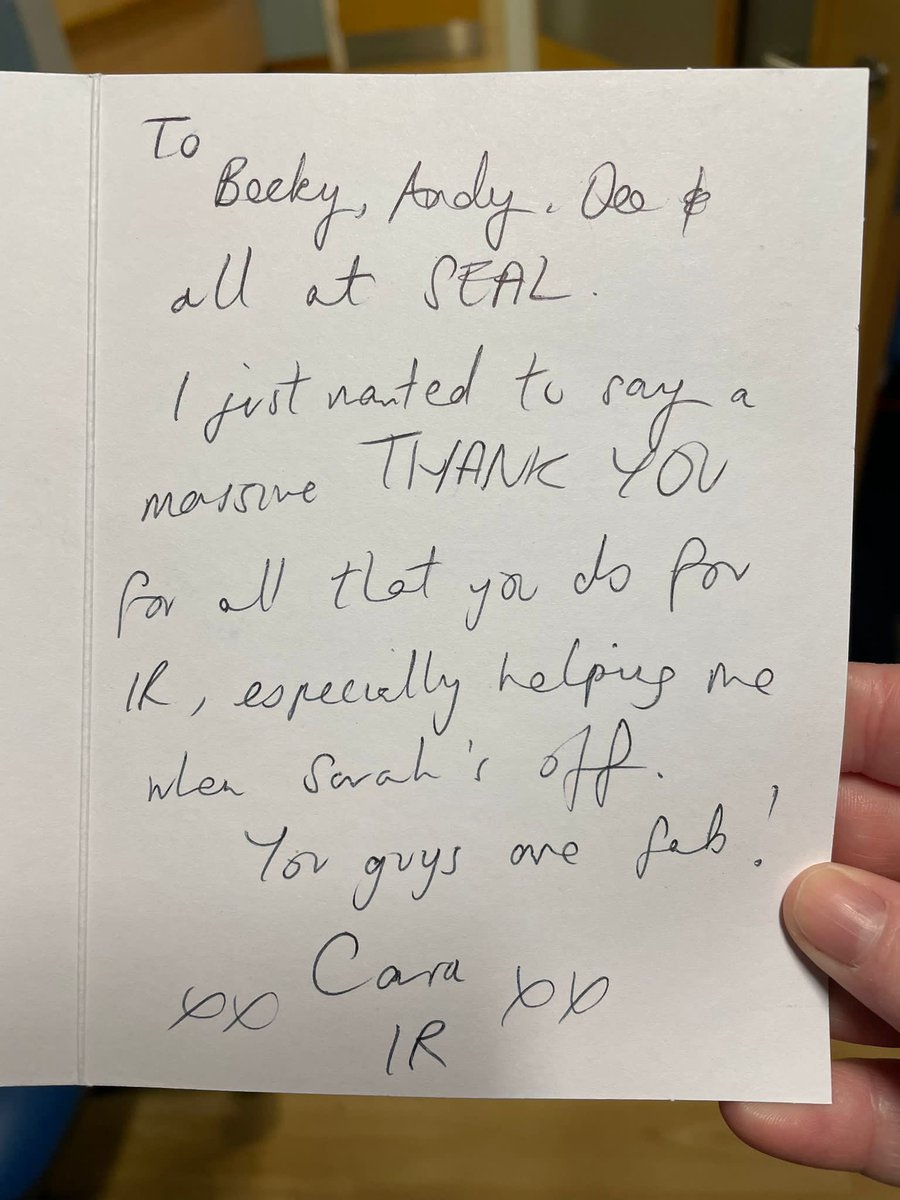 To
Becky, Andy. Dee &
all at SEAL.
I just wanted to say a
massive THANK YOU
for all that you do for
IR, especially helping me
when Sarah's off.
You guys are fab!
Cara
xx xx
IR